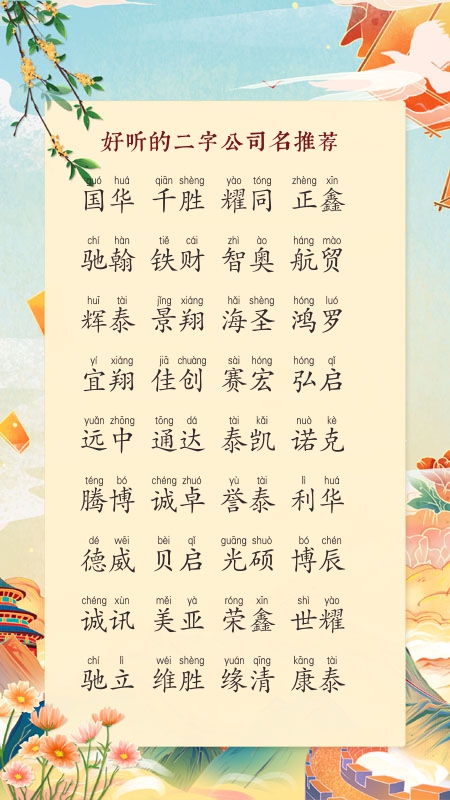 好听的二字公司名推荐
guó huá qiān shèng yào tóng zhèng xīn
国华 千胜 耀同 正鑫
chí hàn tiě cái zhì ào háng mào
驰翰 铁财 智奥 航贸
huī tài jǐng xiáng hǎi shèng hóng luó
辉泰 景翔 海圣 鸿罗
yí xiáng jiā chuàng sài hóng hóng qǐ
宜翔 佳创 赛宏 弘启
yuǎn zhōng tōng dá tài kǎi nuò kè
远中 通达 泰凯 诺克
téng bó chéng zhuó yù tài lì huá
腾博 诚卓 誉泰 利华
dé wēi bèi qǐ guāng shuò bó chén
德威 贝启 光硕 博辰
chéng xùn měi yà róng xīn shì yào
诚讯 美亚 荣鑫 世耀
chí lì wéi shèng yuán qīng kāng tài
驰立 维胜 缘清 康泰